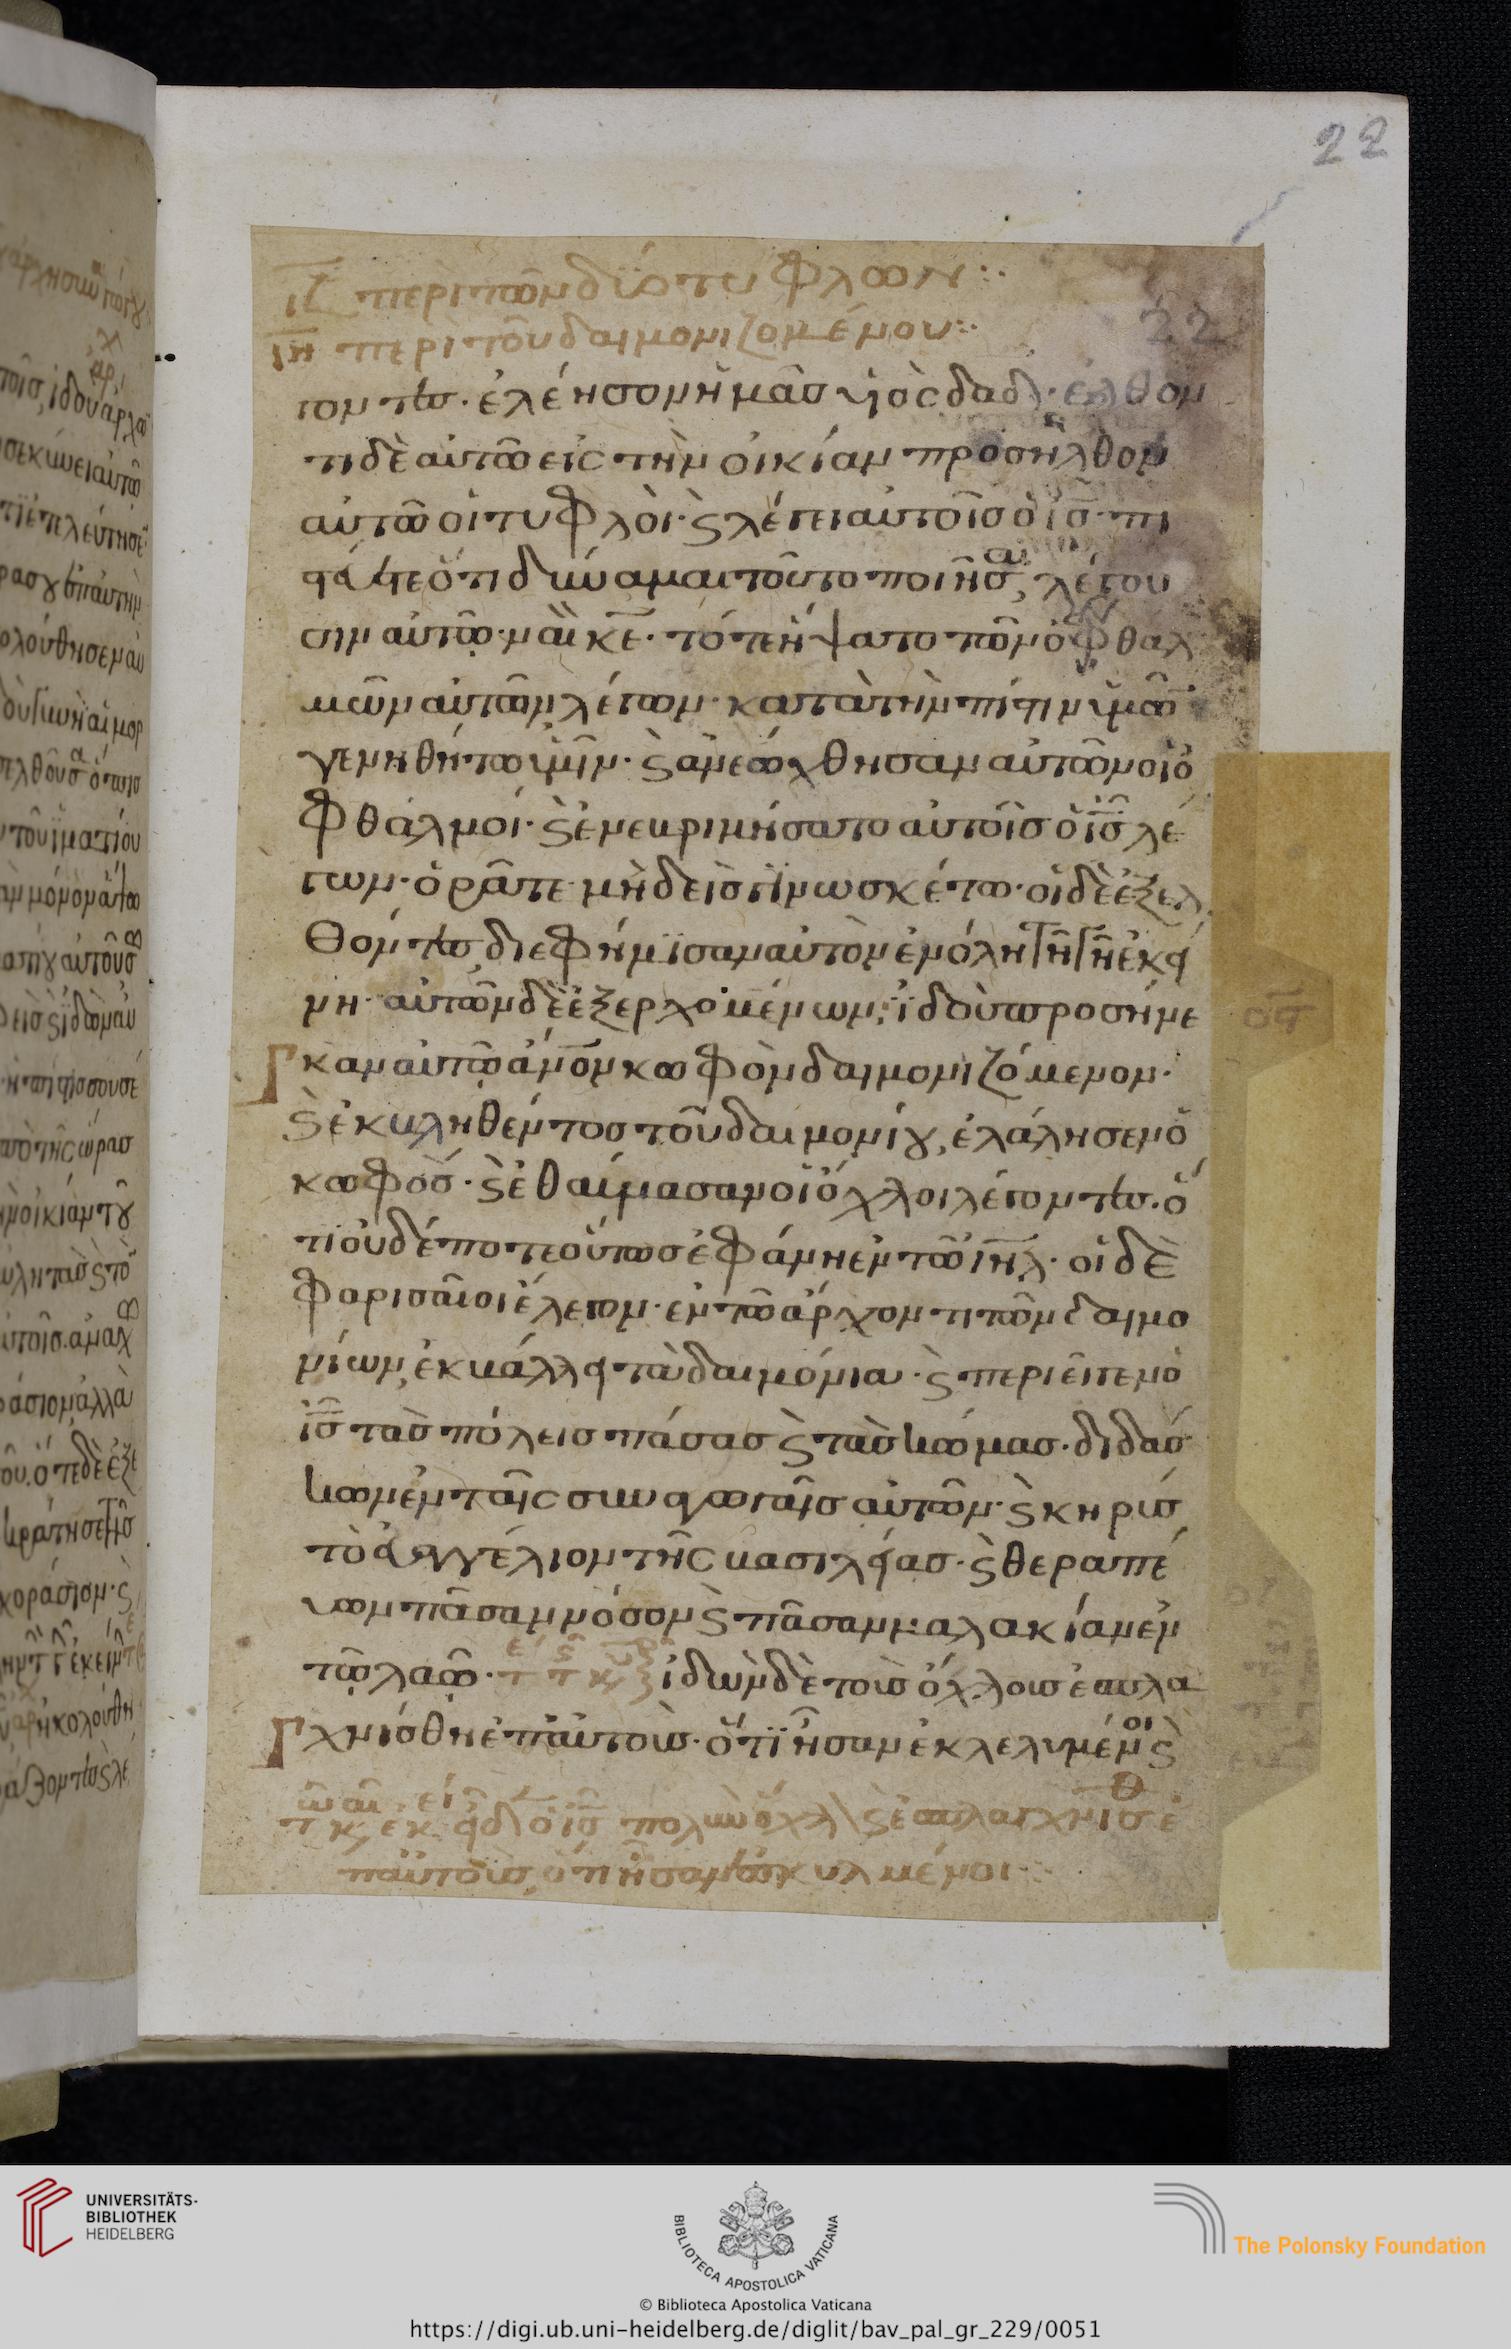 22
ιζ περὶ τῶν δύο τυφλῶν:·
ιη περὶ τοῦ δαιμονιζομένου:·
22
γοντες· ἐλέησον ἡμᾶς υἱὸς δαδ· ἐλθόν
τι δὲ αὐτῶ εἰς τὴν οἰκίαν προσῆλθον
αὐτῶ οἱ τυφλοὶ· ϗ λέγει αὐτοῖς ὁ ις· πι
στεύετε ὅτι δύναμαι τοῦτο ποιῆσαι, λέγου
σιν αὐτῶ· ναὶ κε· τότε ἥψατο τῶν ὀφθαλ
μῶν αὐτῶν λέγων· κατὰ τὴν πίστιν ὑμῶν
γενηθήτω ὑμῖν· ϗ ἀνεώχθησαν αὐτῶν οἱ ὀ
φθαλμοί· ϗ ἐνεβριμήσατο αὐτοῖς ὁ ις λέ
γων· ὁρᾶτε μὴδεὶς γινωσκέτω· οἱ δὲ ἐξελ
θόντες, διεφήμϊσαν αὐτὸν ἐν ὅλη τῆ γῆ ἐκεί
νη· αὐτῶν δὲ ἐξερχομένων, ἰδοὺ προσήνε
γκαν αὐτῶ ἀνον κωφὸν δαιμονιζόμενον·
ϗ ἐκβληθέντος τοῦ δαιμονίου, ἐλάλησεν ὁ
κωφός· ϗ ἐθαύμασαν οἱ ὄχλοι λέγοντες· ὅ
τι οὐδέποτε οὕτως ἐφάνη ἐν τῶ ιηλ· οἱ δὲ
φαρισαῖοι ἔλεγον· ἐν τῶ ἄρχοντι τῶν δαιμο
νίων, ἐκβάλλει τὰ δαιμόνια· ϗ περιεῖγεν ὁ
ις τὰς πόλεις πάσας ϗ τὰς κώμας· διδάσ
κων ἐν ταῖς συναγωγαῖς αὐτῶν· ϗ κηρύσ
τὸ εὐαγγέλιον τῆς βασιλείας· ϗ θεραπεύ
ων πᾶσαν νόσον ϗ πᾶσαν μαλακίαν ἐν
τῶ λαῶ· ἰδὼν δὲ τοὺς ὄχλους ἐσπλα
γχνίσθη ἐπ' αὐτοὺς· ὅτϊ ἦσαν ἐκλελυμένοι ϗ
τ κ, ἐκ εἶδ ὁ ις πολὺν ὄχλ ϗ ἐσπλαγχνίσθ ἐ
π' αὐτοὺς, ὅτι ἦσαν ἐσκυλμένοι·
UNIVERSITÄTS-
BIBLIOTHEK
HEIDELBERG
BIBLIOTECA APOSTOLICA VATICANA
© Biblioteca Apostolica Vaticana
The Polonsky Foundation
https://digi.ub.uni-heidelberg.de/diglit/bav_pal_gr_229/0051